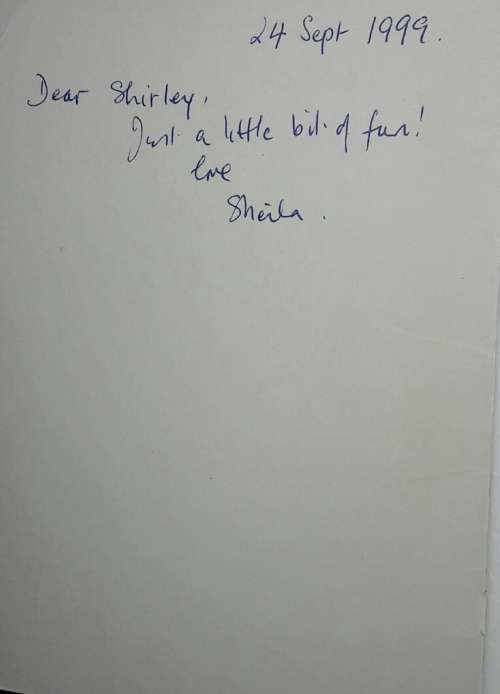 24 Sept 1999.
Dear Shirley,
Just a little bit of fun!
love
Sheila.